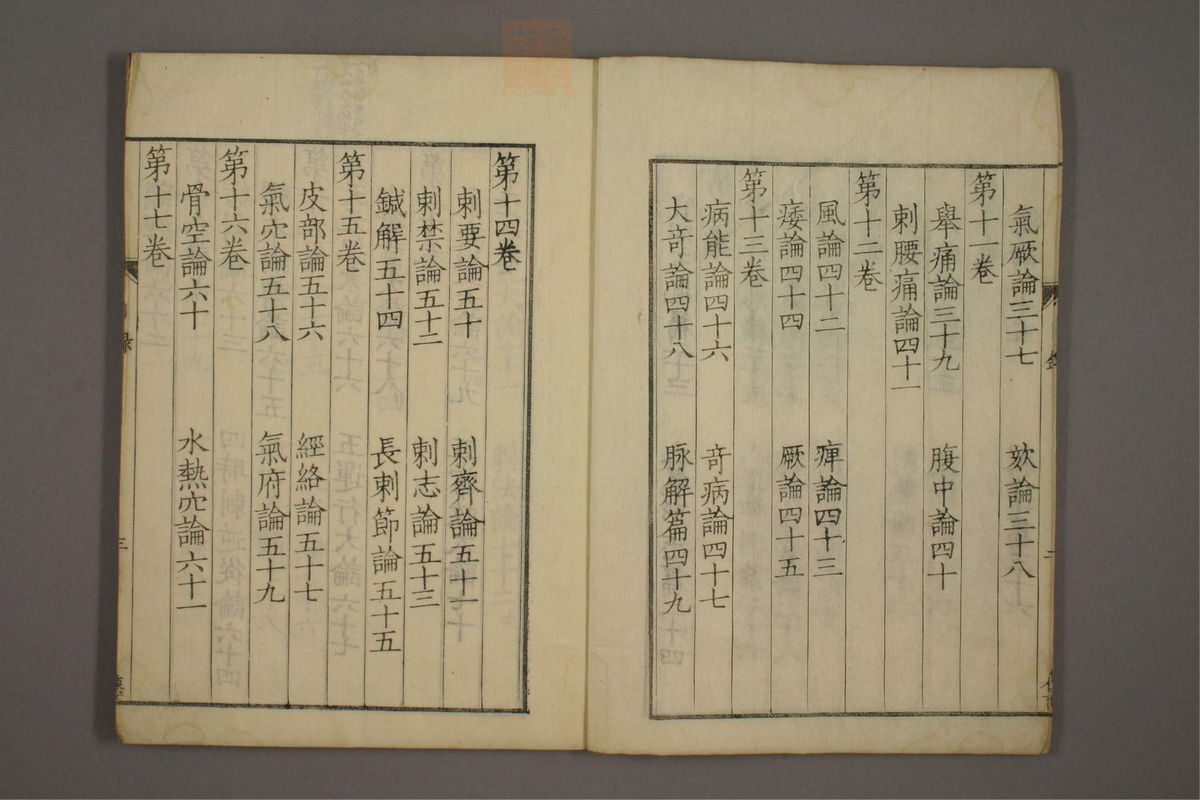 氣厥論三十七　欬論三十八
第十一卷
舉痛論三十九　腹中論四十
刺腰痛論四十一
第十二卷
風論四十二　痺論四十三
痿論四十四　厥論四十五
第十三卷
病能論四十六　奇病論四十七
大奇論四十八　脉解篇四十九
第十四卷
刺要論五十　刺齊論五十一
刺禁論五十二　刺志論五十三
鍼解五十四　長刺節論五十五
第十五卷
皮部論五十六　經絡論五十七
氣穴論五十八　氣府論五十九
第十六卷
骨空論六十　水熱穴論六十一
第十七卷